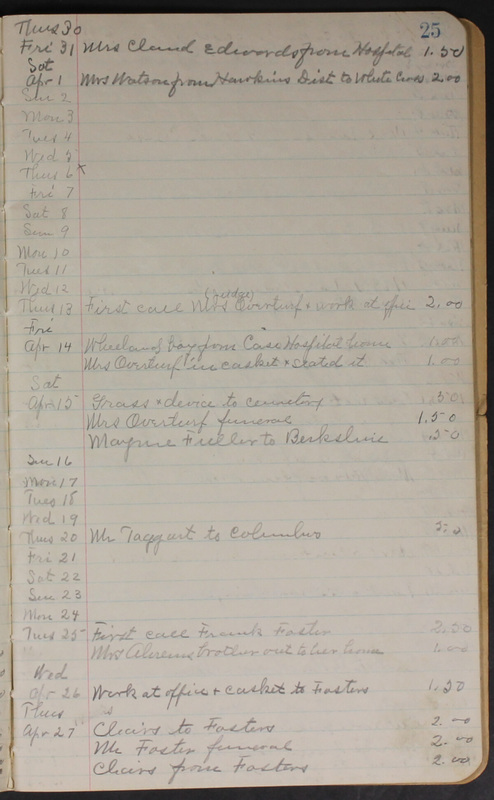 25
Thurs 30
Fri 31 Mrs Claud Edwards from Hospital 1.50
Sat
Apr 1 Mrs Watson from Hawkins Dist to White 2.00
Sun 2
Mon 3
Tues 4
Wed 5
Thurs 6 x
Fri 7
Sat 8
Sun 9
Mon 10
Tues 11
Wed 12
Thurs 13 First call Mrs Overturf & work at office 2.00
Fri
Apr 14 boy from Case Hospital home 1.00
Mrs Overturf in casket & seated it 1.00
Sat
Apr 15 Grass & device to cemetery .50
Mrs Overturf funeral 1.50
Mayme Fuller to Berkshire .50
Sun 16
Mon 17
Tues 18
Wed 19
Thurs 20 Mr Taggart to Columbus
Fri 21
Sat 22
Sun 23
Mon 24
Tues 25 First call Frank Foster 2.50
Mrs brother out to her home 1.00
Wed
Apr 26 Work at office & casket to Fosters 1.50
Thurs
Apr 27 Chairs to Fosters 2.00
Mr Foster funeral 2.00
Chairs from Fosters 2.00